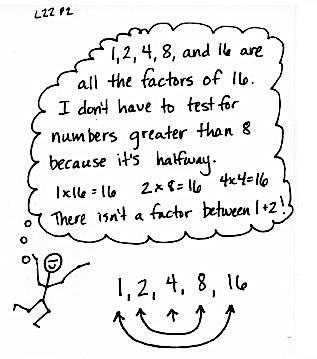 L22 P2
1, 2, 4, 8, and 16 are
all the factors of 16.
I don't have to test for
numbers greater than 8
because it's halfway.
1x16 = 16 2 x 8 = 16 4x4=16
There isn't a factor between 1+2!
1, 2, 4, 8, 16